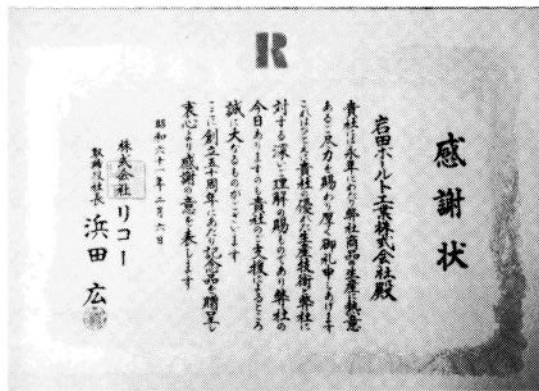 R
感謝状
岩田ボルト工業株式会社殿
貴社は永年にわたり弊社商品の生産に熱意
あるご尽力を賜わり厚く御礼申しあげます
これはひとえに貴社の優れた生産技術と弊社に
対する深いご理解の賜ものであり弊社の
今日ありますのも貴社のご支援によるところ
誠に大なるものがございます
ここに創立五十周年にあたり記念品を贈呈し
衷心より感謝の意を表します
昭和六十一年二月六日
株式会社リコー
取締役社長 浜田広